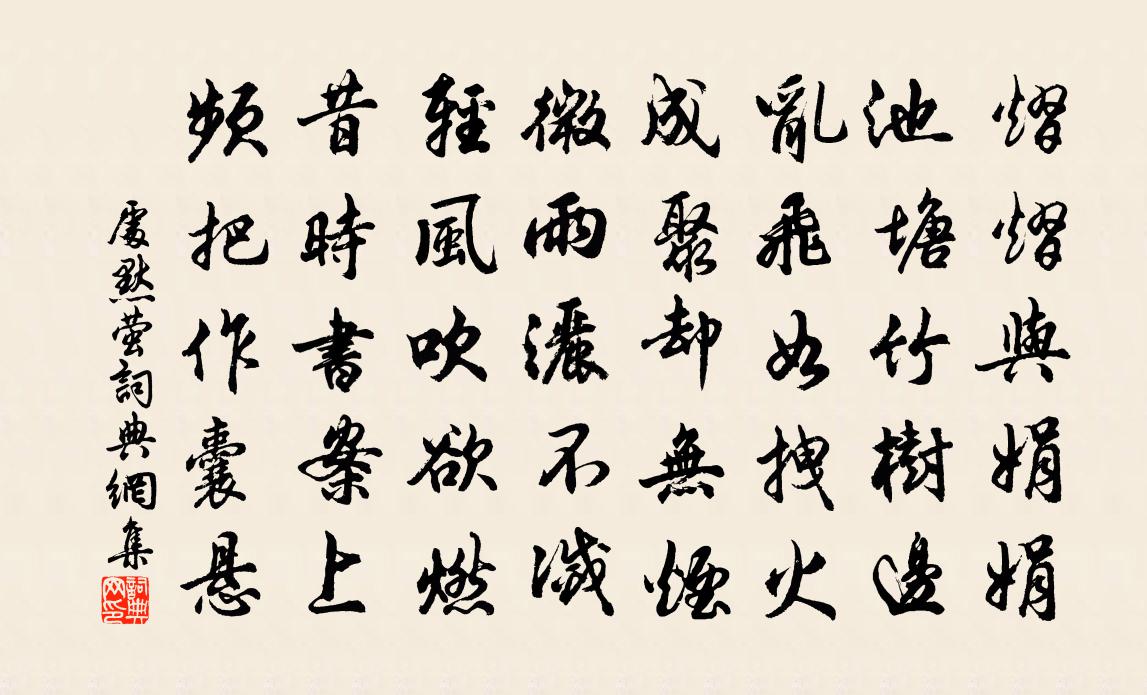 熠熠與娟娟
池塘竹樹邊
亂飛如拽火
成聚却無煙
微雨灑不滅
輕風吹欲燃
昔時書案上
頻把作囊悬
處默萤詞典網集
詞典网印